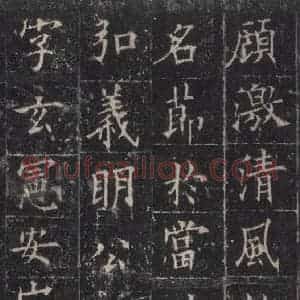 顧激清風
名節於當
弘義明公
字玄憲安